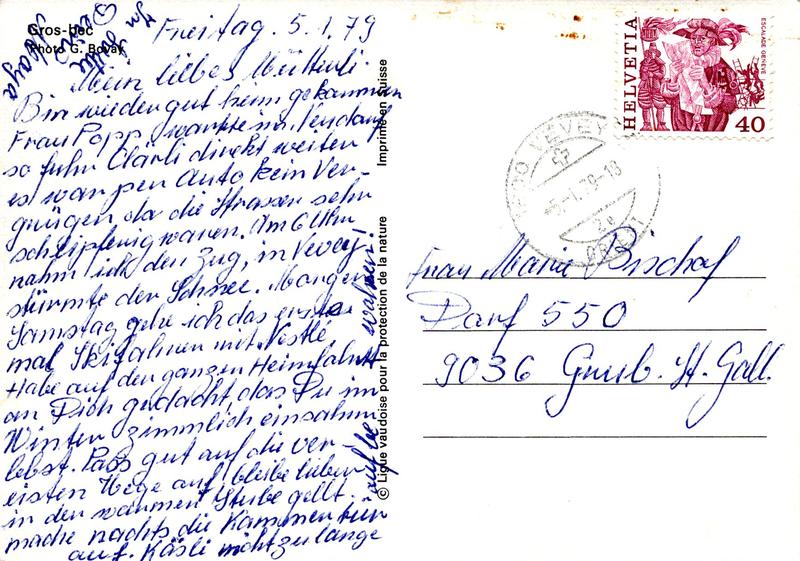 Gros-bec
Photo G. Bovay
Freitag. 5.1.79
Mein liebes Mütterli.
Bin wieder gut heim gekommen
Frau Popp wartete in Vendang
so fuhr Clärli direkt weiter
es war per Auto kein Ver-
gnügen da die Strassen sehr
schlipfrig waren. Um 6 Uhr
nahm ich den Zug, in Vevey
stürmte der Schnee. Morgen
Samstag gehe ich das erste
mal Skifahren mit Nestlé
Habe auf der ganzen Heimfahrt
an Dich gedacht, das Du im
Winter zimmlich einsahm
lebst. Pass gut auf die ver-
eisten Wege auf, bleibe lieber
in der warmen Stube gell.
mache nachts die Kammertür
auf. Käsli nicht zu lange
aufbe
wahren!
In
Liebe
Deine
Imprimé en Suisse
© Ligue vaudoise pour la protection de la nature
HELVETIA
ESCALADE GENÈVE
40
VEVEY
5-1.79-18
Frau Marie Bischof
Dorf 550
9036 Grub. St. Gall.